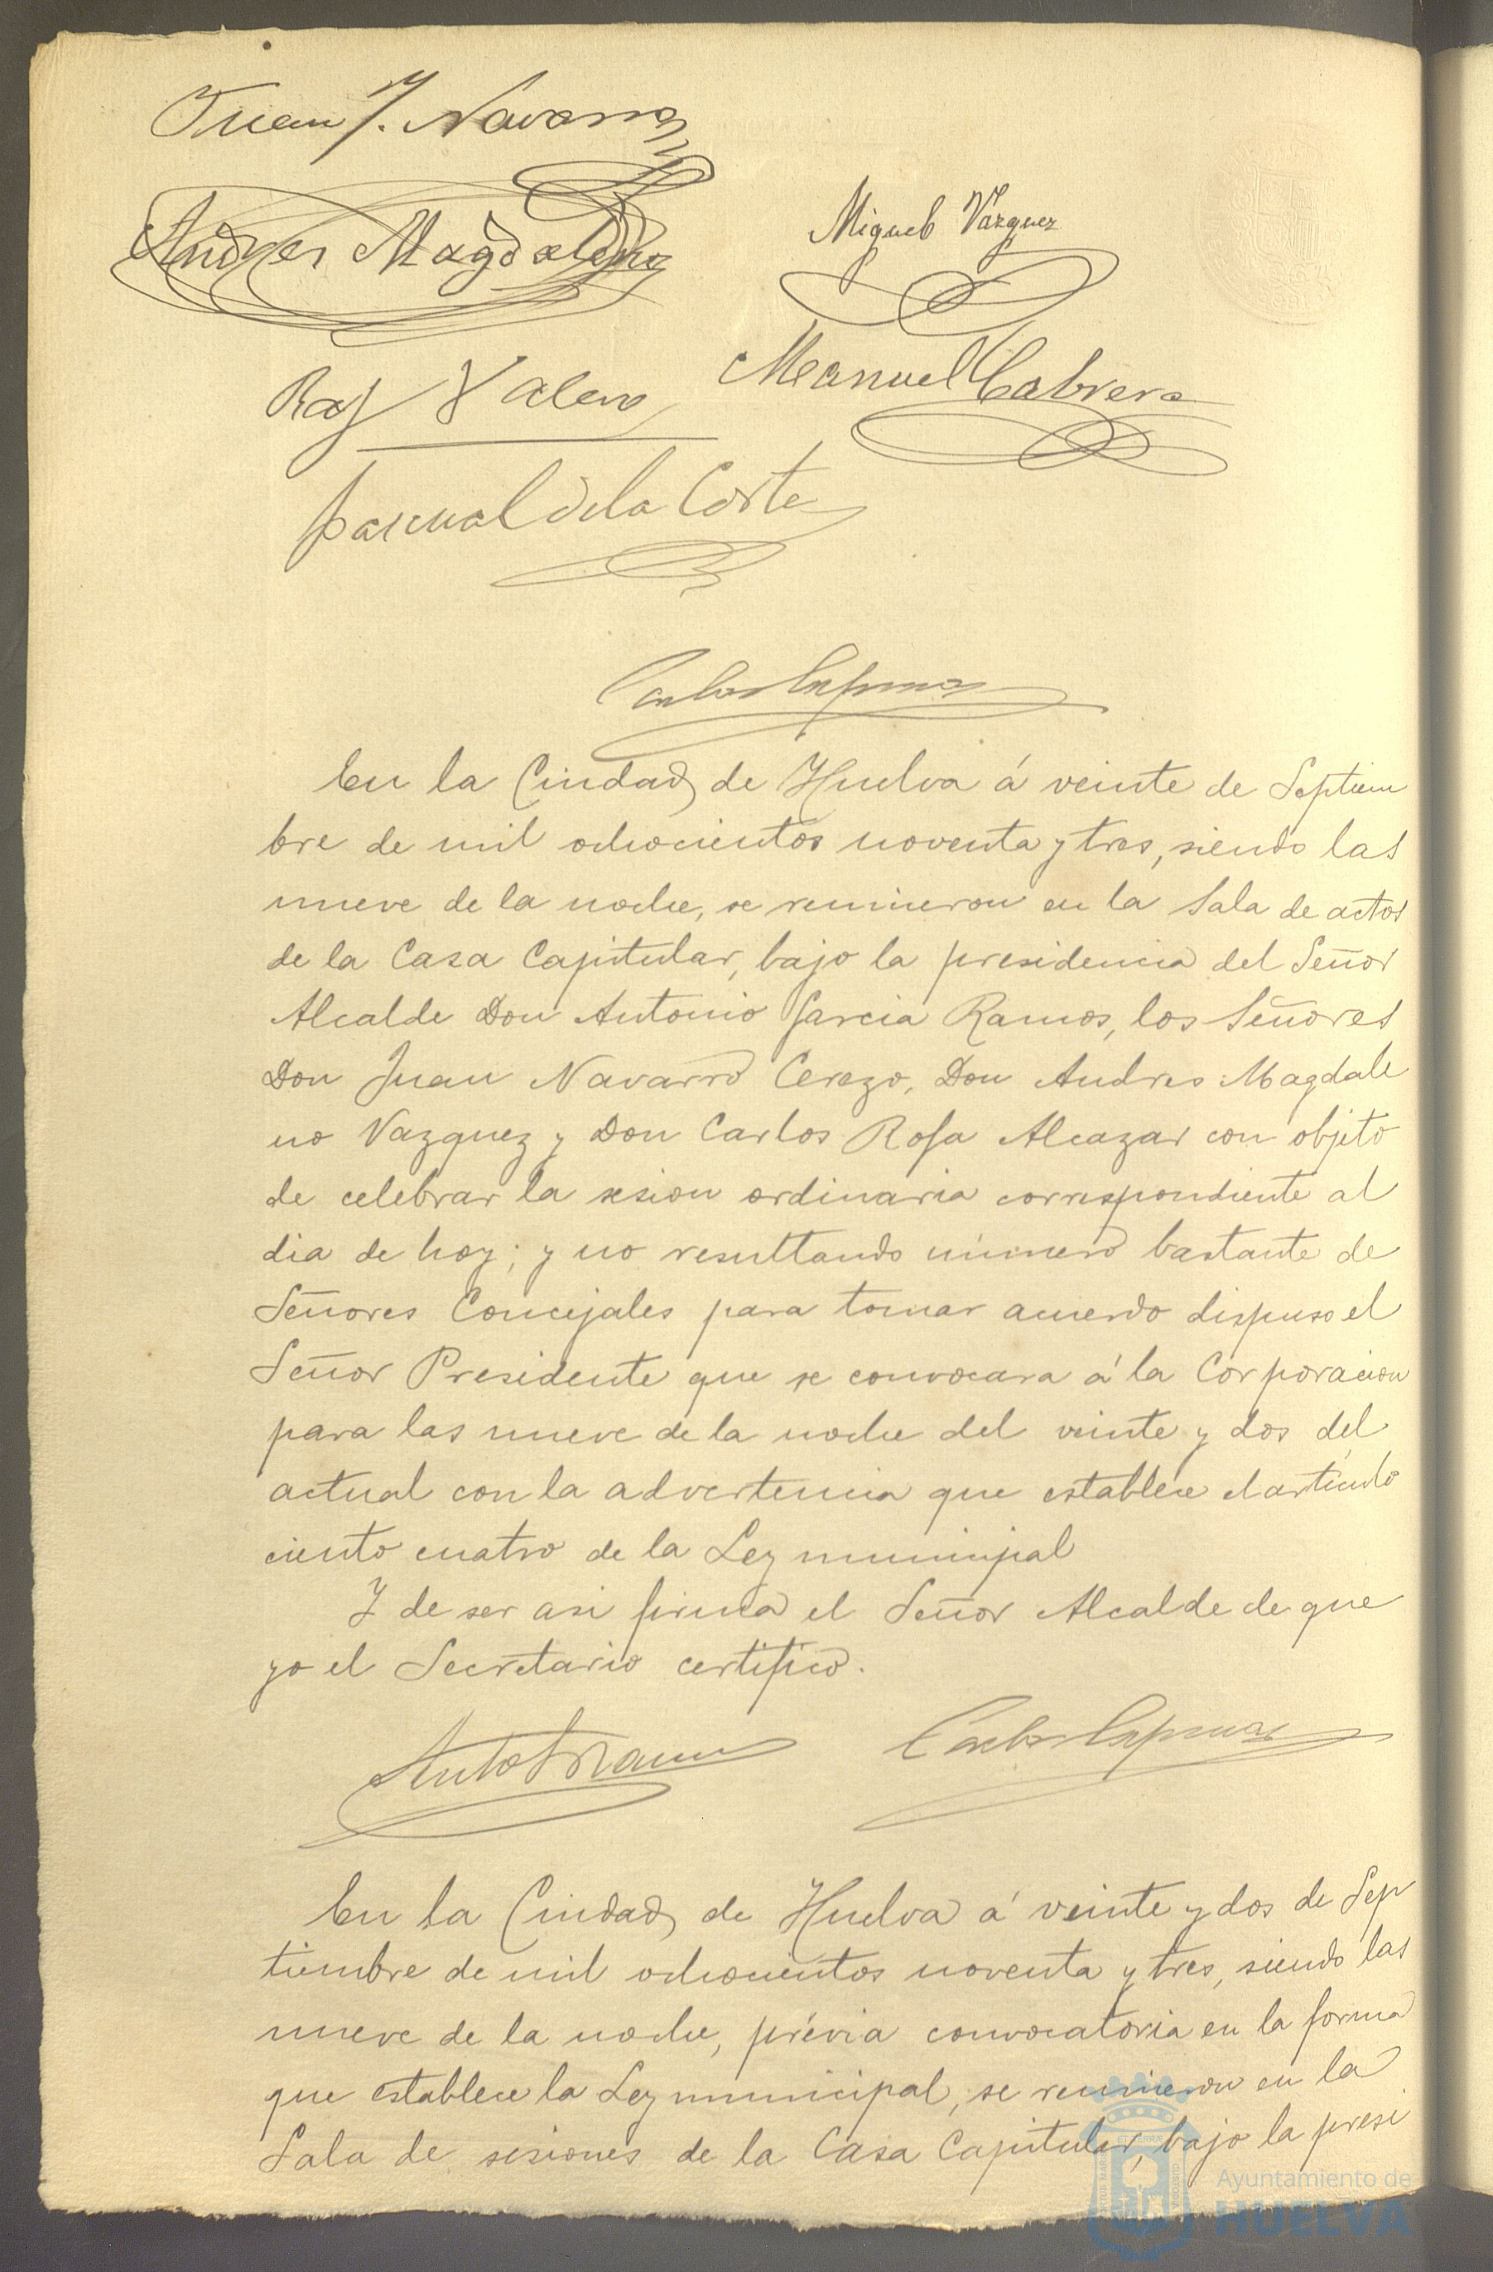 Juan J. Navarro
Andres Magdaleno
Miguel Vazquez
Raf Valero
Manuel Cabrera
Pascual de la Corte
Carlos
En la Ciudad de Huelva á veinte de Septiem
bre de mil ochocientos noventa y tres, siendo las
nueve de la noche, se reunieron en la Sala de actos
de la Casa Capitular, bajo la presidencia del Señor
Alcalde Don Antonio Garcia Ramos, los Señores
Don Juan Navarro Cerezo, Don Andres Magdale
no Vazquez y Don Carlos Rosa Alcazar con objeto
de celebrar la sesion ordinaria correspondiente al
dia de hoy; y no resultando número bastante de
Señores Concejales para tomar acuerdo dispuso el
Señor Presidente que se convocara á la Corporacion
para las nueve de la noche del veinte y dos del
actual con la advertencia que establece el artículo
ciento cuatro de la Ley municipal
Y de ser asi firma el Señor Alcalde de que
yo el Secretario certifico.
Anto G Ramos Carlos
En la Ciudad de Huelva á veinte y dos de Sep
tiembre de mil ochocientos noventa y tres, siendo las
nueve de la noche, prévia convocatoria en la forma
que establece la Ley municipal, se reunieron en la
Sala de sesiones de la Casa Capitular, bajo la presi
Ayuntamiento de
HUELVA